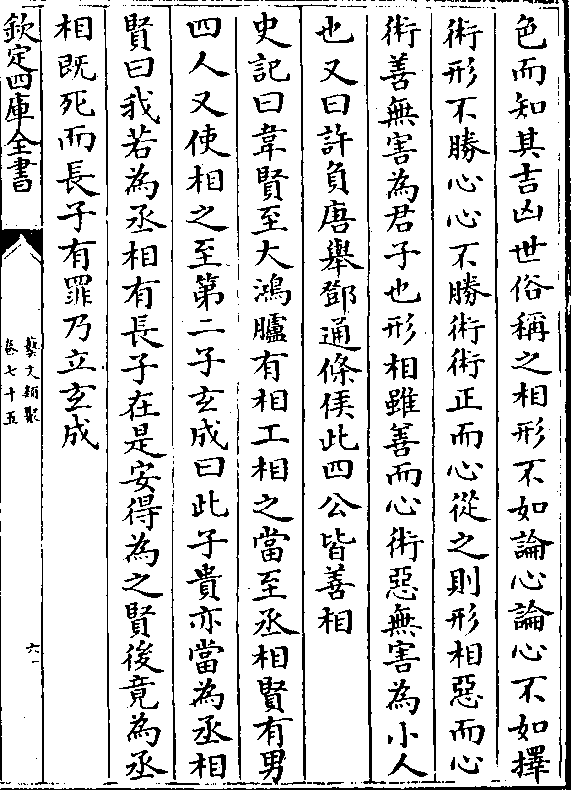 色而知其吉凶世俗稱之相形不如論心論心不如擇
術形不勝心心不勝術術正而心從之則形相惡而心
術善無害為君子也形相雖善而心術惡無害為小人
也又曰許負唐舉鄧通條侯此四公皆善相
史記曰韋賢至大鴻臚有相工相之當至丞相賢有男
四人又使相之至第二子玄成曰此子貴亦當為丞相
賢曰我若為丞相有長子在是安得為之賢後竟為丞
相既死而長子有罪乃立玄成
欽定四庫全書
藝文類聚
卷七十五
六